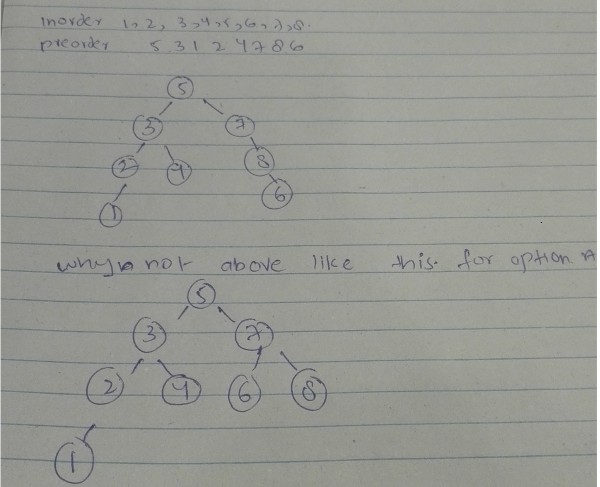 inorder 1, 2, 3, 4, 5, 6, 7, 8.
preorder 5 3 1 2 4 7 8 6
5
3 7
2 4 8
6
1
why not above like this for option A
5
3 7
2 4 6 8
1